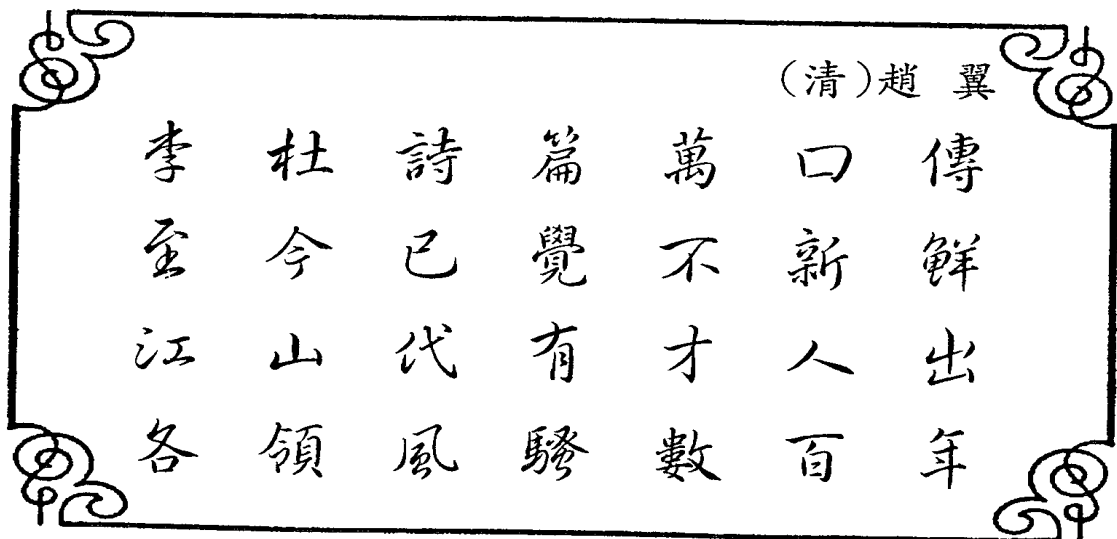 （清）趙 翼
李杜詩篇萬口傳
至今已覺不新鮮
江山代有才人出
各領風騷數百年